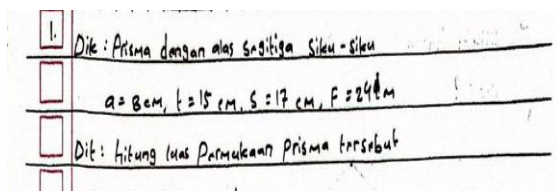 1. Dik : Prisma dengan alas segitiga siku-siku
a = 8 cm, t = 15 cm, S = 17 cm, F = 24 cm
Dit : hitung luas Permukaan Prisma tersebut